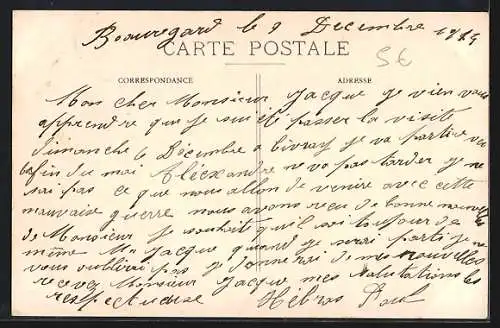 Beauregard le 9 Decembre 1914
CARTE POSTALE
5€
CORRESPONDANCE
ADRESSE
Mon cher Monsieur Jacque je vien vous
apprendre que je sui été passer la visite
dimanche 6 Décembre a livray je va partire
la fin du mai Aléexandre ne va pas tarder je ne
sai pas ce que nous allon de venire avec cette
mauvaise guerre nous avons reçu de bonne nouvelle
de Monsieur je souhaite qu'il soit toujour de
même Mr Jacque quand je serai parti je ne
vous oublirai pas je donnerai de mes nouvelles
recevez Monsieur Jacque mes salutations les
respectueuse Hebras Paul